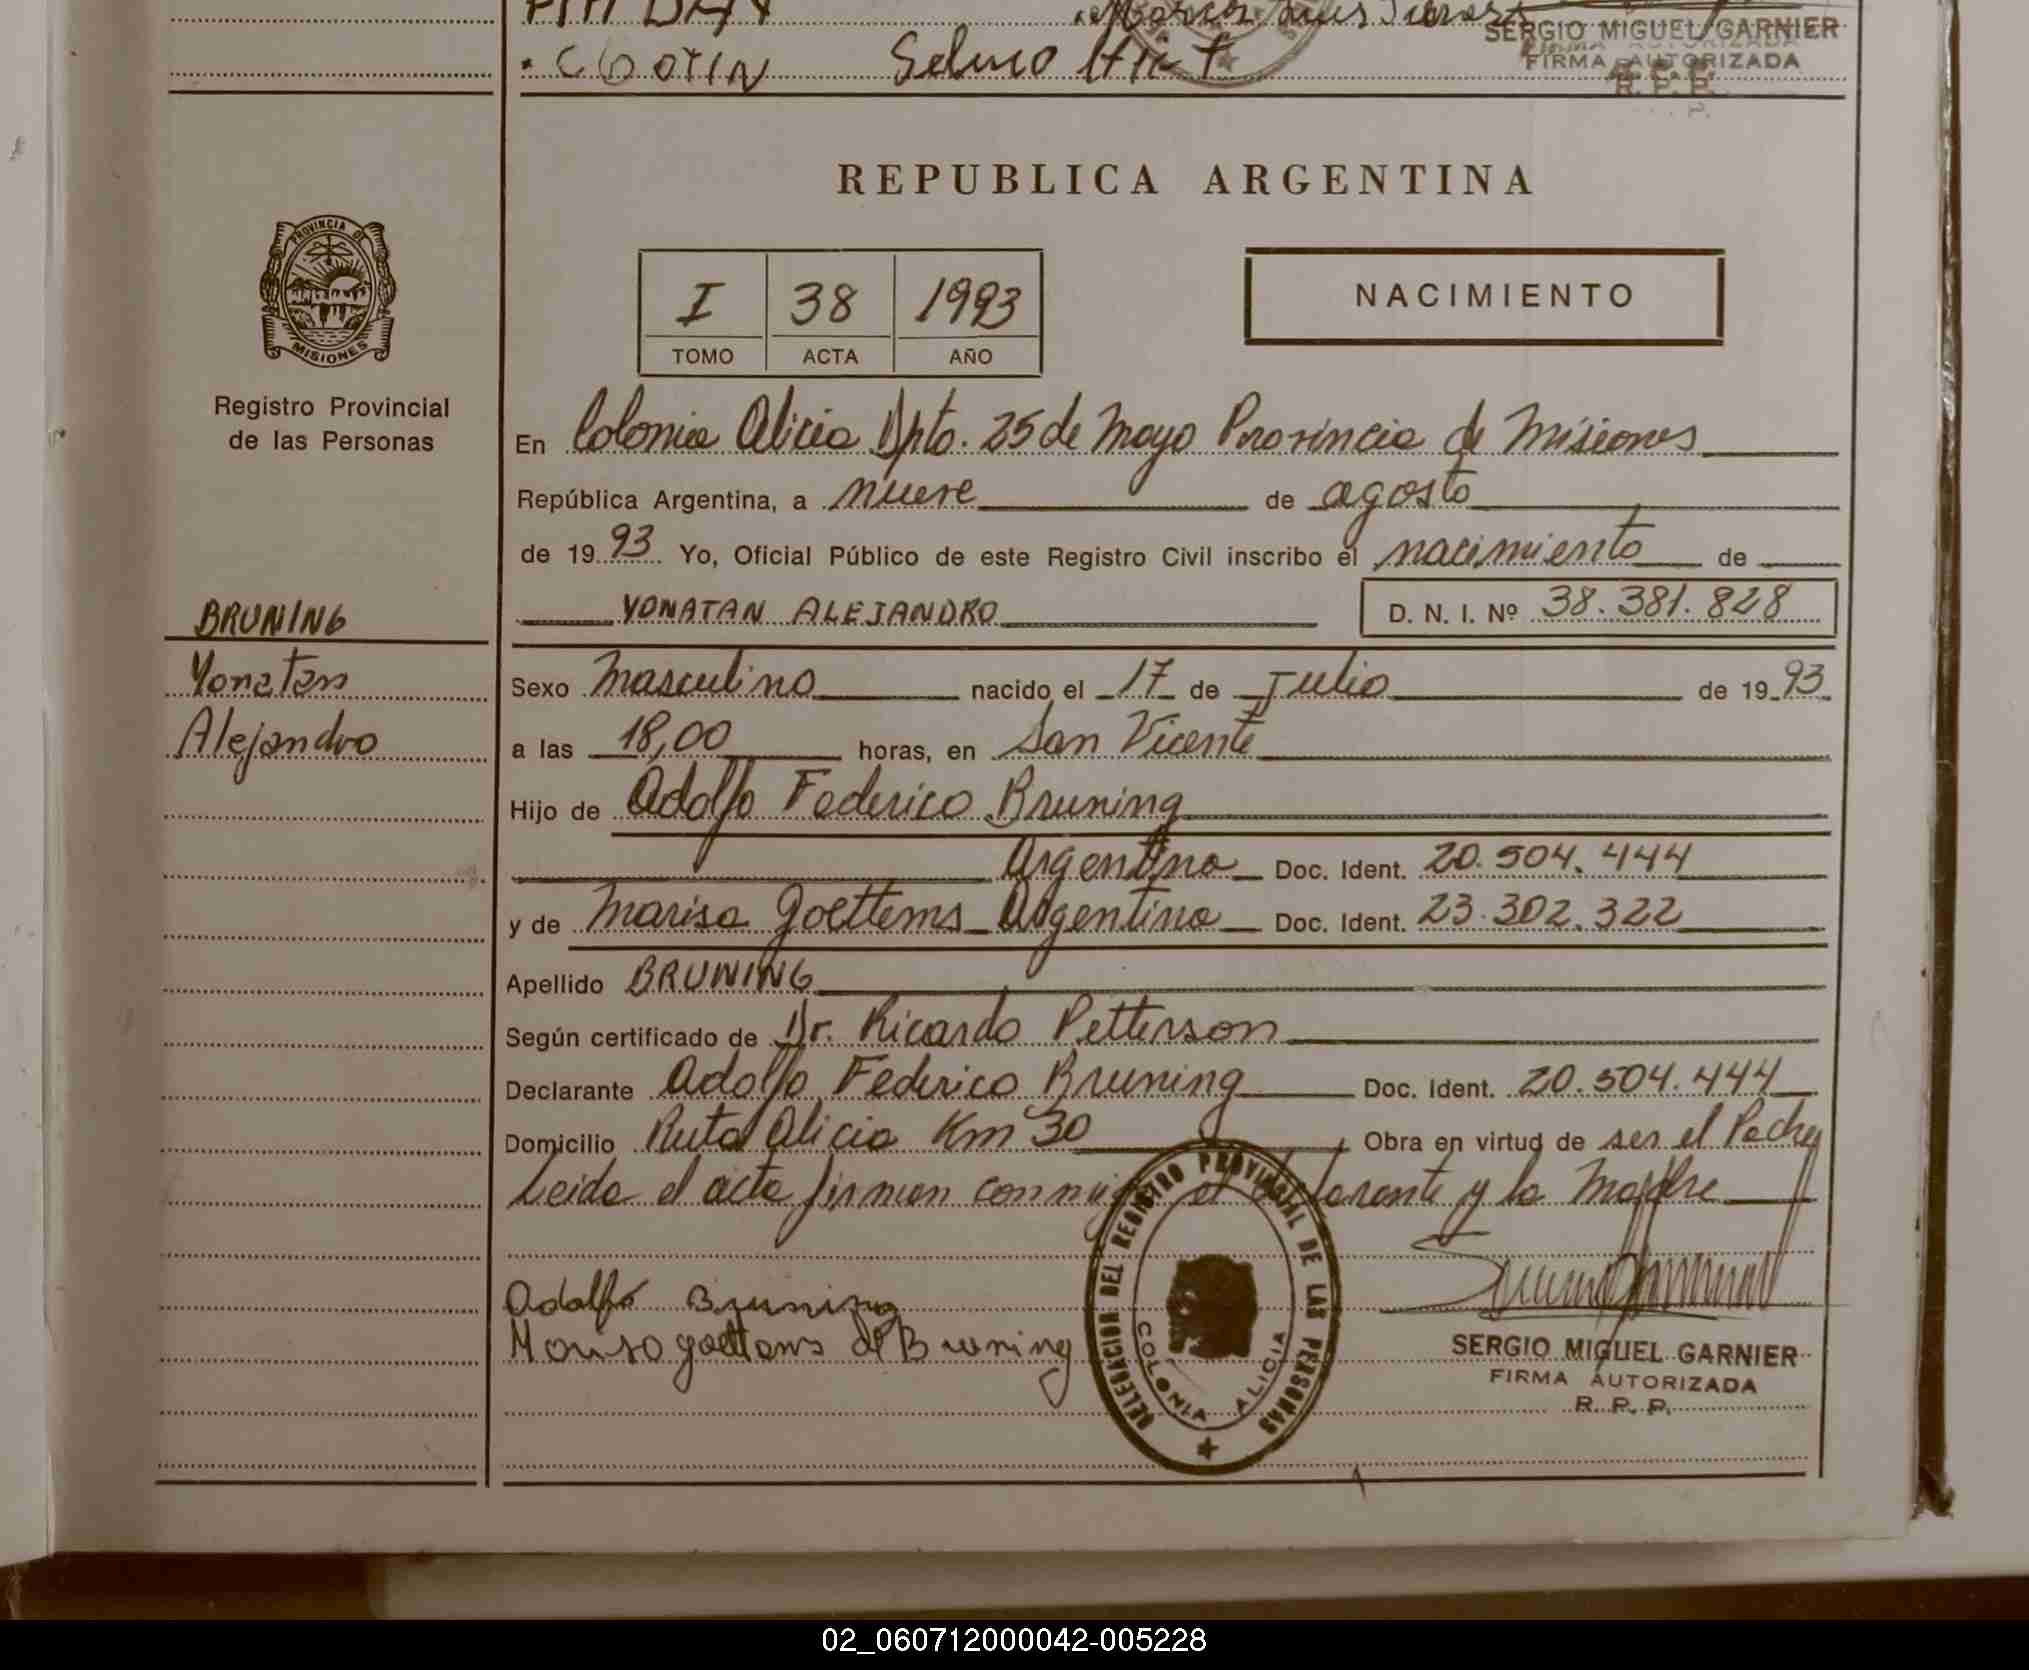 SERGIO MIGUEL GARNIER
FIRMA AUTORIZADA
R. P. P.
REPUBLICA ARGENTINA
PROVINCIA DE
MISIONES
Registro Provincial
de las Personas
I 38 1993
TOMO ACTA AÑO
NACIMIENTO
En Colonia Alicia Dpto. 25 de Mayo Provincia de Misiones
República Argentina, a nueve de agosto
de 19 93 Yo, Oficial Público de este Registro Civil inscribo el nacimiento de
BRUNING
YONATAN ALEJANDRO D. N. I. Nº 38.381.828
Yonatan
Alejandro
Sexo Masculino nacido el 17 de Julio de 19 93
a las 18,00 horas, en San Vicente
Hijo de Adolfo Federico Bruning
Argentino Doc. Ident. 20.504.444
y de Marisa Goettems Argentina Doc. Ident. 23.302.322
Apellido BRUNING
Según certificado de Dr. Ricardo Petterson
Declarante Adolfo Federico Bruning Doc. Ident. 20.504.444
Domicilio Ruta Alicia Km 30 Obra en virtud de ser el Padre
Leida el acta firman conmigo el declarante y la Madre
Adolfo Bruning
Marisa Goettems de Bruning
DELEGACION DEL REGISTRO PROVINCIAL DE LAS PERSONAS
COLONIA ALICIA
SERGIO MIGUEL GARNIER
FIRMA AUTORIZADA
R. P. P.
02_060712000042-005228